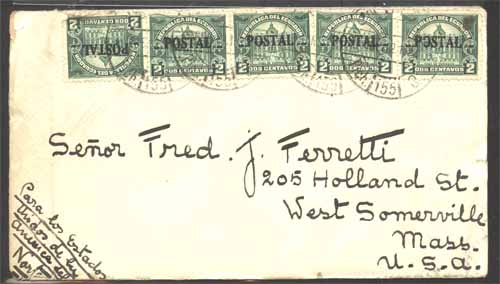 REPUBLICA DEL ECUADOR
POSTAL
DOS CENTAVOS
2 2
REPUBLICA DEL ECUADOR
POSTAL
2 DOS CENTAVOS 2
REPUBLICA DEL ECUADOR
POSTAL
2 DOS CENTAVOS 2
REPUBLICA DEL ECUADOR
POSTAL
2 DOS CENTAVOS 2
REPUBLICA DEL ECUADOR
POSTAL
2 DOS CENTAVOS 2
155 155 155
Señor Fred. J. Ferretti
205 Holland St.
West Somerville
Mass.
U.S.A.
Para los Estados
Unidos de
America del
Nor